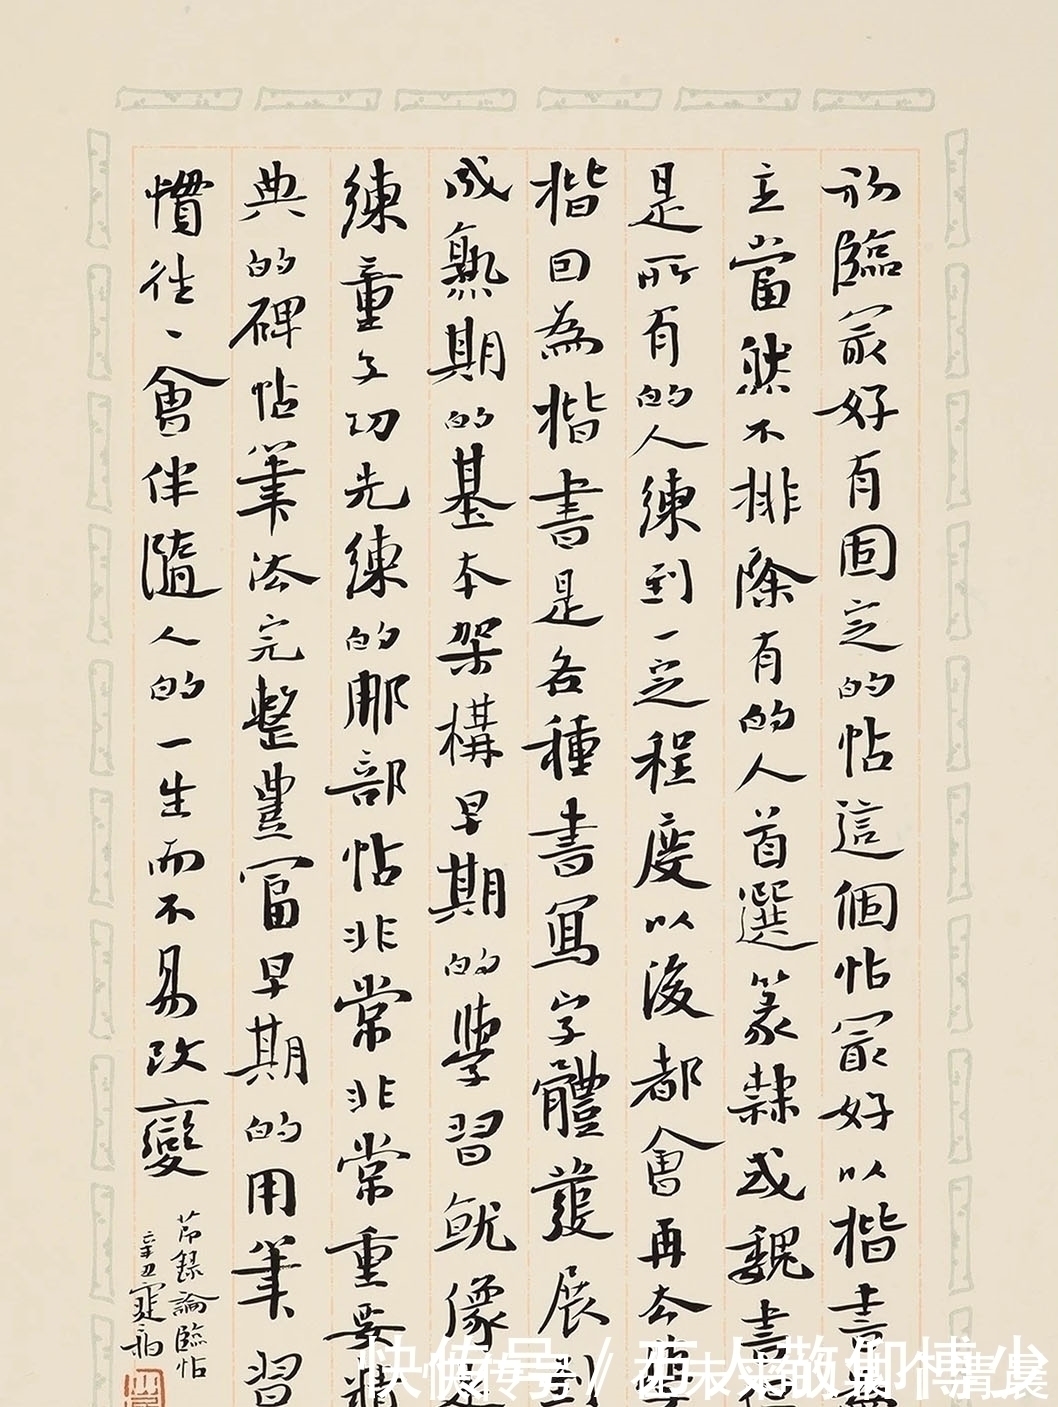 初臨冣好有固定的帖這個帖冣好以楷書為
主當然不排除有的人首選篆隸或魏書但
是所有的人練到一定程度以後都會再去學
楷回為楷書是各種書寫字體發展到
成熟期的基本架構早期的學習就像是
練童子功先練的那部帖非常非常重要精
典的碑帖筆法完整豐富早期的用筆習
慣往往會伴隨人的一生而不易改變
節錄論臨帖
辛丑
快传号/